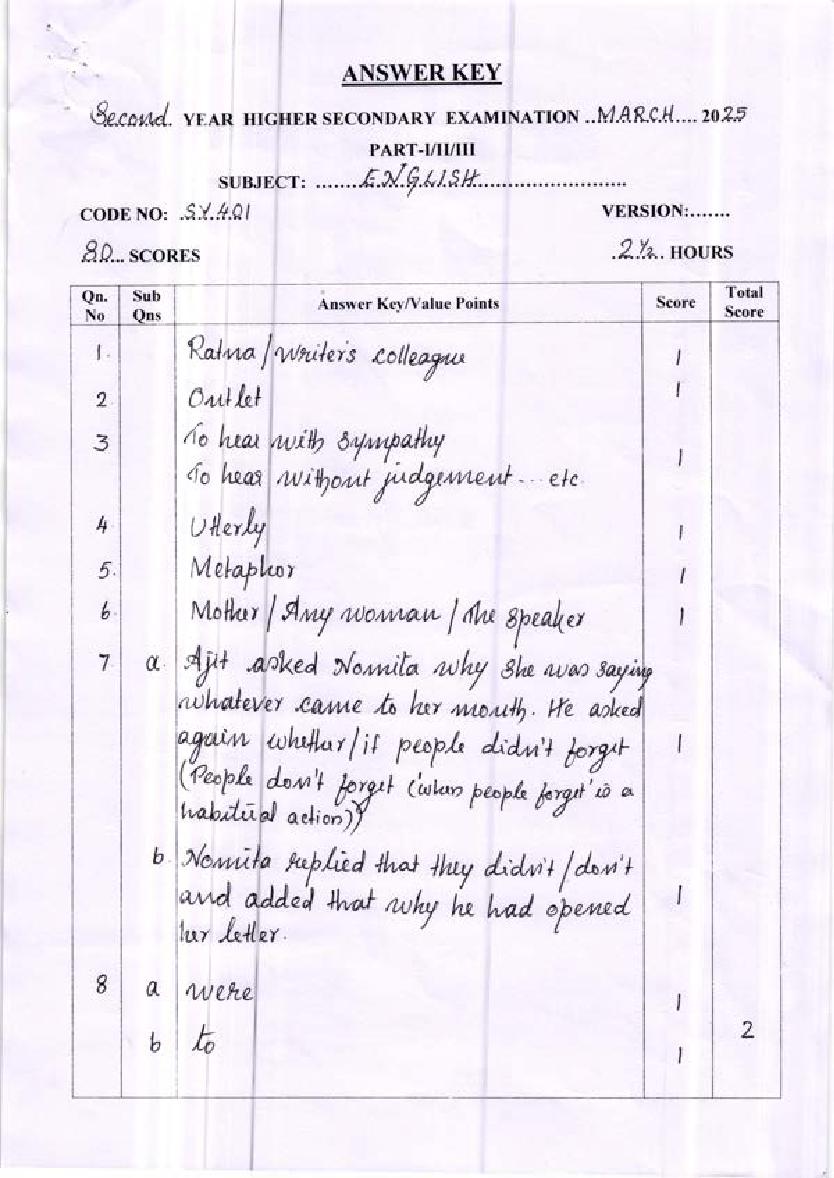 ANSWER KEY
Second YEAR HIGHER SECONDARY EXAMINATION ..MARCH.... 2025
PART-I/II/III
SUBJECT: .......ENGLISH..............................
CODE NO: .SY.401
VERSION:.......
80... SCORES
.2½.. HOURS
Qn. No Sub Qns Answer Key/Value Points Score Total Score
1. Ratna/writer's colleague 1
2. Outlet 1
3 To hear with sympathy
To hear without judgement... etc. 1
4 Utterly 1
5. Metaphor 1
6. Mother/Any woman/The speaker 1
7 a. Ajit asked Nomita why she was saying
whatever came to her mouth. He asked
again whether/if people didn't forget 1
(People don't forget ( people forget' is a
habitual action))
b. Nomita replied that they didn't/don't
and added that why he had opened 1
her letter.
8 a were 1
2
b to 1